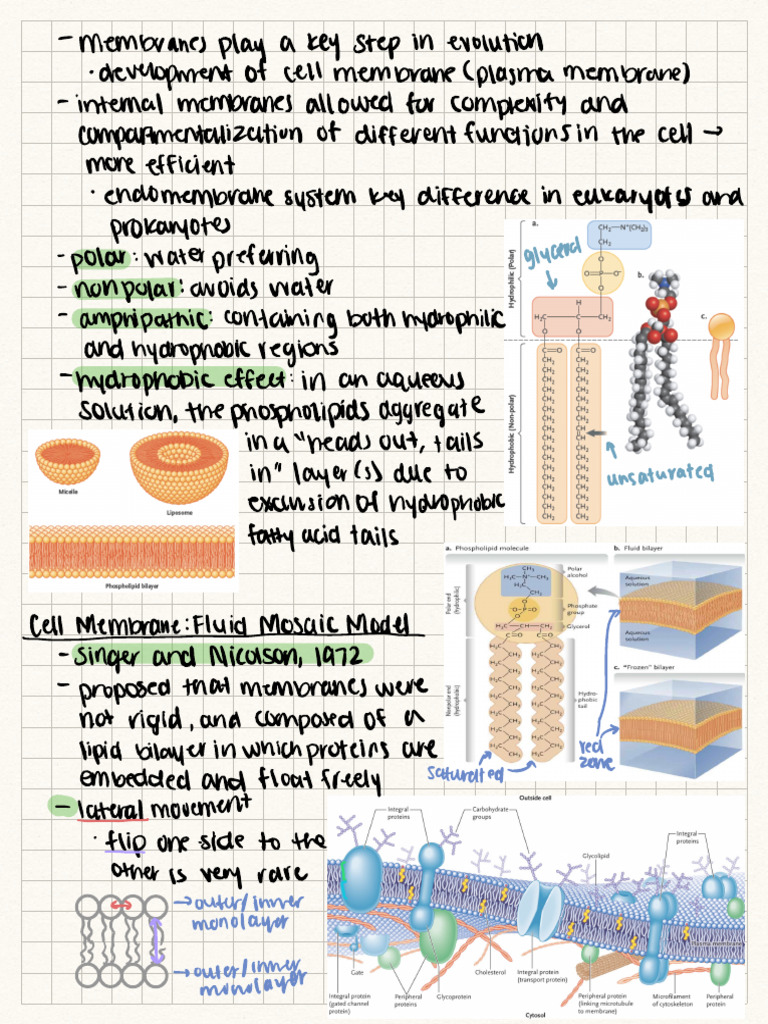 - membranes play a key step in evolution
· development of cell membrane (plasma membrane)
- internal membranes allowed for complexity and
compartmentalization of different functions in the cell →
more efficient
· endomembrane system key difference in eukaryotes and
prokaryotes
- polar: water preferring
- nonpolar: avoids water
- amphipathic: containing both hydrophilic
and hydrophobic regions
- hydrophobic effect: in an aqueous
solution, the phospholipids aggregate
in a "heads out, tails
in" layer(s) due to
exclusion of hydrophobic
fatty acid tails
a.
Hydrophilic (Polar)
Hydrophobic (Non-polar)
glycerol
CH₂—N⁺(CH₃)₃
CH₂
O
O—P—O⁻
O
H
H₂C—C—CH₂
O O
C=O C=O
CH₂ CH₂
b.
c.
unsaturated
Micelle
Liposome
Phospholipid bilayer
a. Phospholipid molecule
Polar end (hydrophilic)
Nonpolar end (hydrophobic)
Polar alcohol
Phosphate group
Glycerol
Hydrophobic tail
b. Fluid bilayer
Aqueous solution
Aqueous solution
c. "Frozen" bilayer
saturated
red zone
Cell Membrane: Fluid Mosaic Model
- Singer and Nicolson, 1972
- proposed that membranes were
not rigid, and composed of a
lipid bilayer in which proteins are
embedded and float freely
- lateral movement
· flip one side to the
other is very rare
→ outer/inner
monolayer
→ outer/inner
monolayer
Outside cell
Integral proteins
Carbohydrate groups
Glycolipid
Integral proteins
Plasma membrane
Gate
Cholesterol
Integral protein (transport protein)
Integral protein (gated channel protein)
Peripheral proteins
Glycoprotein
Peripheral protein (linking microtubule to membrane)
Microfilament of cytoskeleton
Peripheral protein
Cytosol